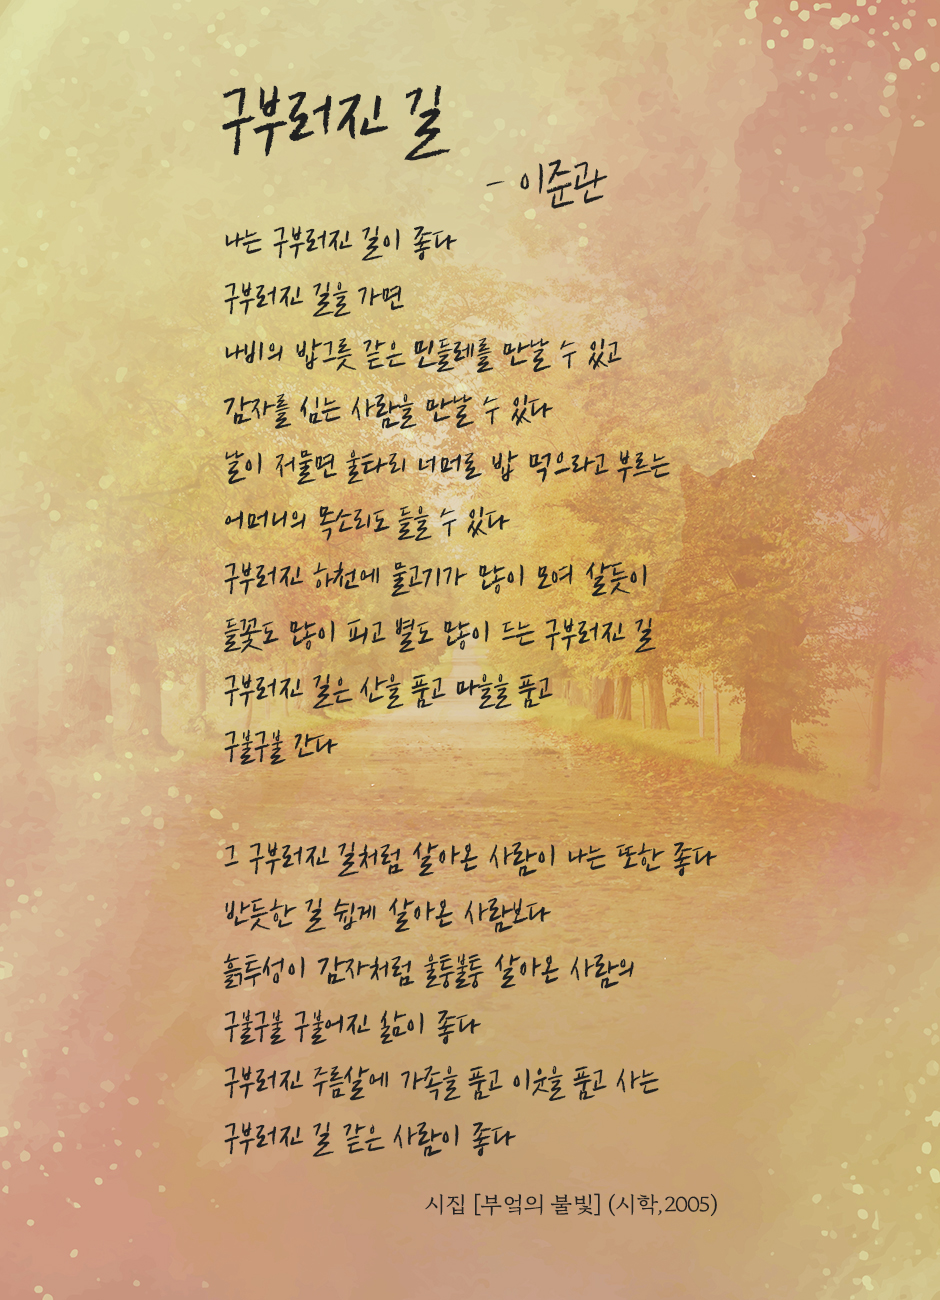 구부러진 길
- 이준관
나는 구부러진 길이 좋다
구부러진 길을 가면
나비의 밥그릇 같은 민들레를 만날 수 있고
감자를 심는 사람을 만날 수 있다
날이 저물면 울타리 너머로 밥 먹으라고 부르는
어머니의 목소리도 들을 수 있다
구부러진 하천에 물고기가 많이 모여 살듯이
들꽃도 많이 피고 별도 많이 드는 구부러진 길
구부러진 길은 산을 품고 마을을 품고
구불구불 간다
그 구부러진 길처럼 살아온 사람이 나는 또한 좋다
반듯한 길 쉽게 살아온 사람보다
흙투성이 감자처럼 울퉁불퉁 살아온 사람의
구불구불 구불어진 삶이 좋다
구부러진 주름살에 가족을 품고 이웃을 품고 사는
구부러진 길 같은 사람이 좋다
시집 [부엌의 불빛] (시학,2005)